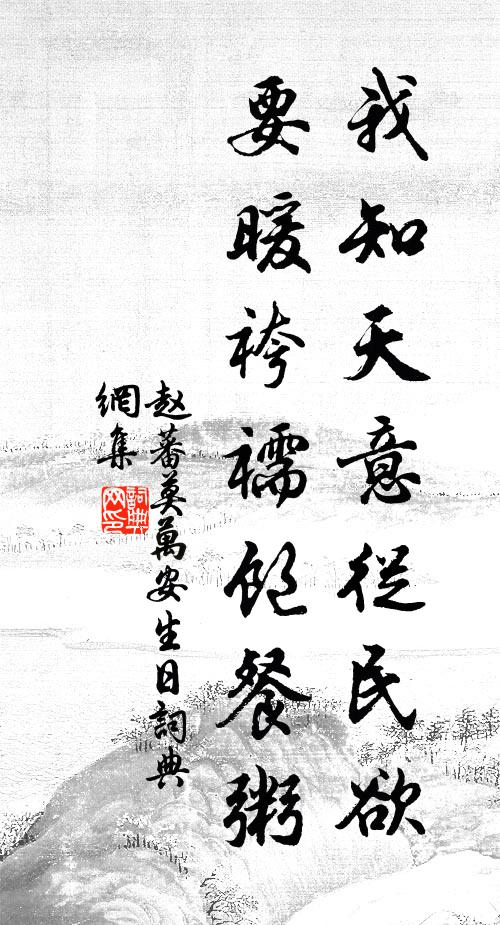 我知天意從民欲
要暖袴襦飽餐粥
赵蕃莫萬安生日詞典
網集
詞典
网印